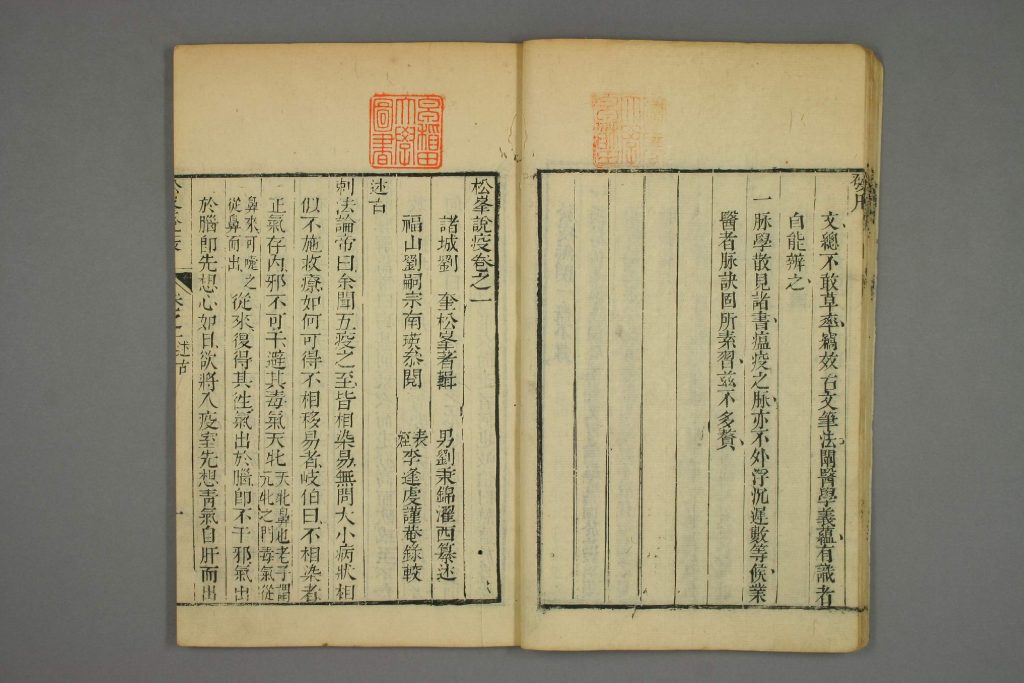 發凡
文總不敢草率竊效古文筆法闡醫學義蘊有識者
自能辨之
一脉學散見諸書瘟疫之脉亦不外浮沉遲數等候業
醫者脉訣固所素習茲不多贅
早稻田大學圖書
松峯說疫卷之一
諸城劉 奎松峯著輯 男劉秉錦濯西纂述
福山劉嗣宗南瑛叅閱 表姪李逢虞謹菴錄較
述古
刺法論帝曰余聞五疫之至皆相染易無問大小病狀相
似不施救療如何可得不相移易者岐伯曰不相染者
正氣存內邪不可干避其毒氣天牝天牝鼻也老子謂元牝之門毒氣從
鼻來可嚏之從鼻而出從來復得其往氣出於腦即不干邪氣出
於腦即先想心如日欲將入疫室先想青氣自肝而出
卷之一 述古 一